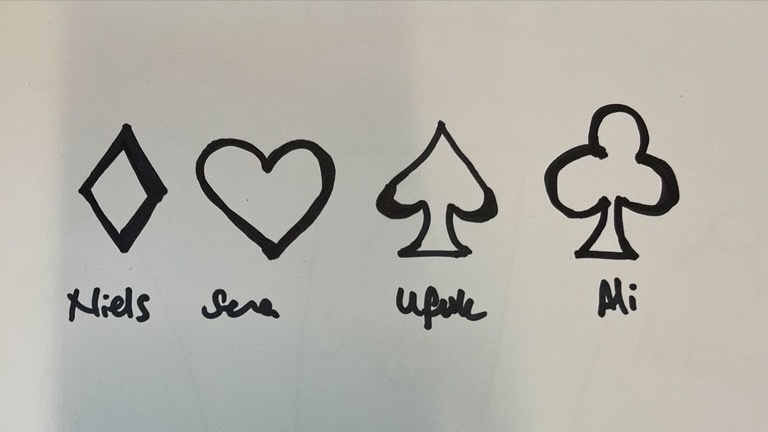 Niels Sena Ufuk Ali